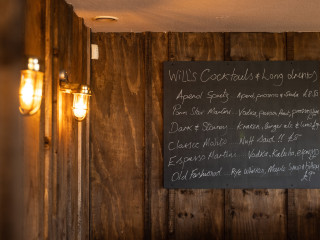 Will's Cocktails & Long drinks
Aperol Spritz Aperol, prosecco & Soda £8.50
Porn Star Martini Vodka, passion fruit, prosecco
Dark & Stormy Kraken, Ginger ale & lime
Classic Mojito Nuff Said !! £8
Espresso Martini Vodka, Kahlua, espresso
Old Fashioned Rye Whiskey, Maple